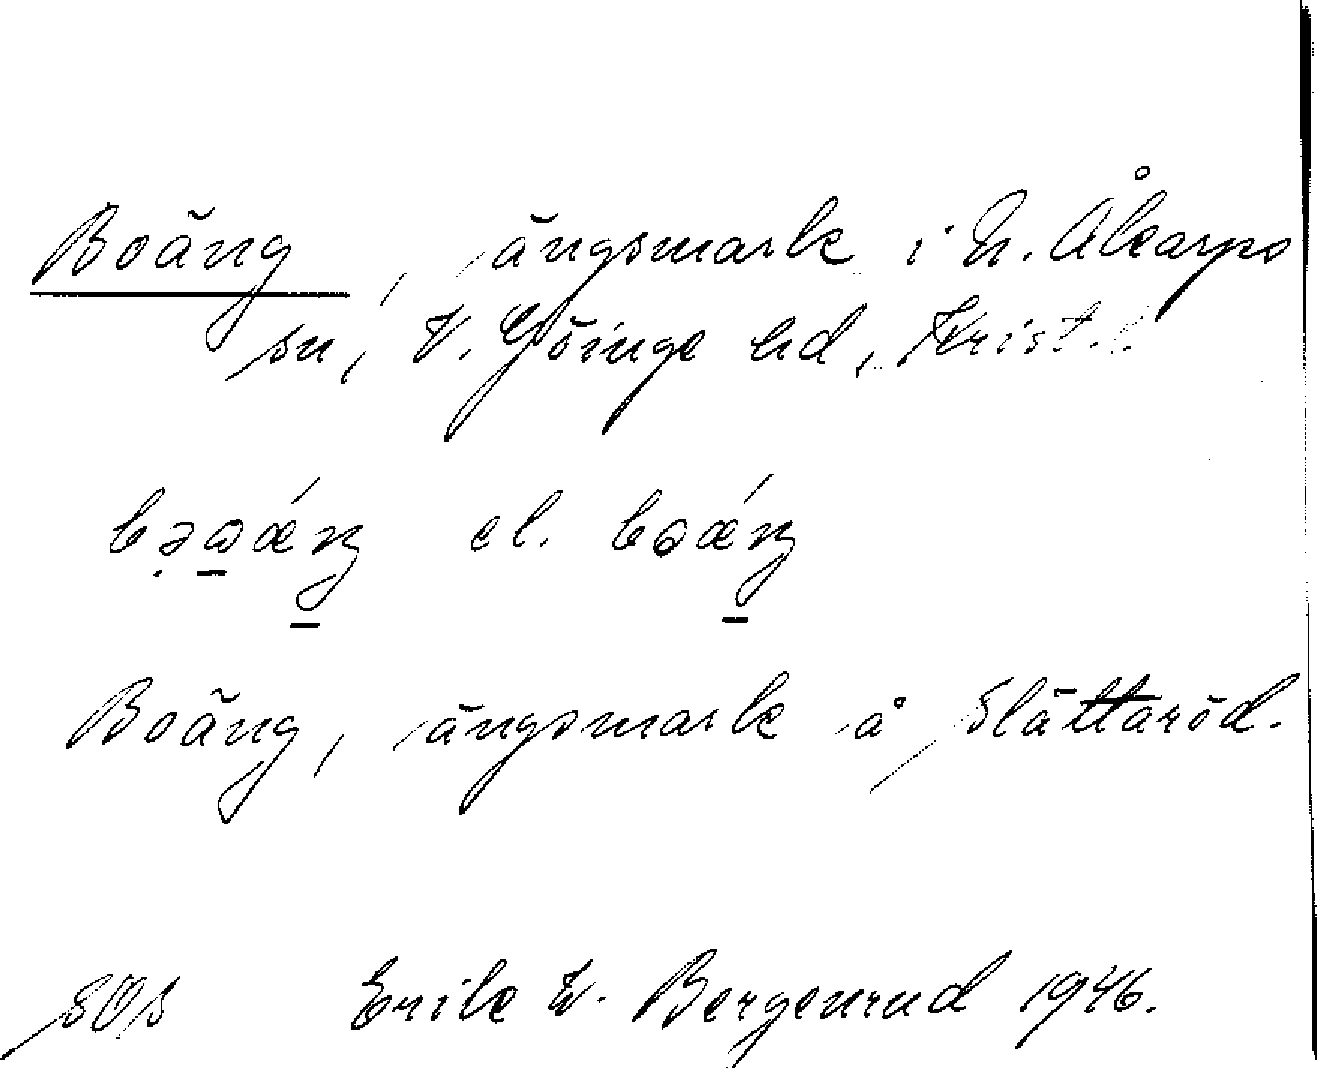 Boäng, ängsmark i N. Åkarps
sn, V. Göinge hd, Krist. l.
bəωǽŋ el. bωǽŋ
Boäng, ängsmark å Slättaröd.
SOS Erik W. Bergenrud 1946.